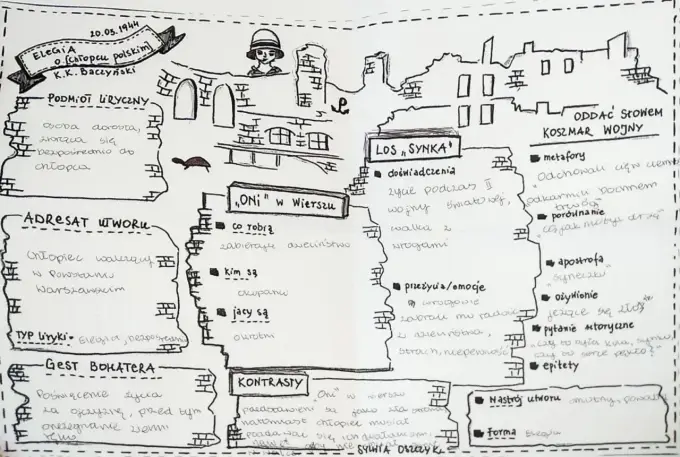 20.03.1944
ELEGIA
O [CHŁOPCU POLSKIM]
K.K. BACZYŃSKI
PODMIOT LIRYCZNY
osoba dorosła,
zwraca się
bezpośrednio do
chłopca
ADRESAT UTWORU
Chłopiec walczący
w Powstaniu
Warszawskim
TYP LIRYKI• Elegia, bezpośrednia
GEST BOHATERA
Poświęcenie życia
za ojczyznę, przed tym
pożegnanie ziemi
"ONI" W WIERSZU
co robią
zabierają dzieciństwo
kim są
okupanci
jacy są
okrutni
KONTRASTY
"Oni" w wierszu
przedstawieni są jako zła strona
natomiast chłopiec musiał
SYLWIA OSZCZYK
LOS „SYNKA"
doświadczenia
życie podczas II
wojny światowej,
walka z
wrogami
przeżycia/emocje
wrogowie
zabrali mu radość
z dzieciństwa,
strach, niepewność
ODDAĆ SŁOWEM
KOSZMAR WOJNY
metafory
porównanie
apostrofa
"syneczku"
ożywienie
jeżące się
pytanie retoryczne
"czy to była kula, synku,
czy to serce pękło?"
epitety
Nastrój utworu smutny, poważny
forma Elegia